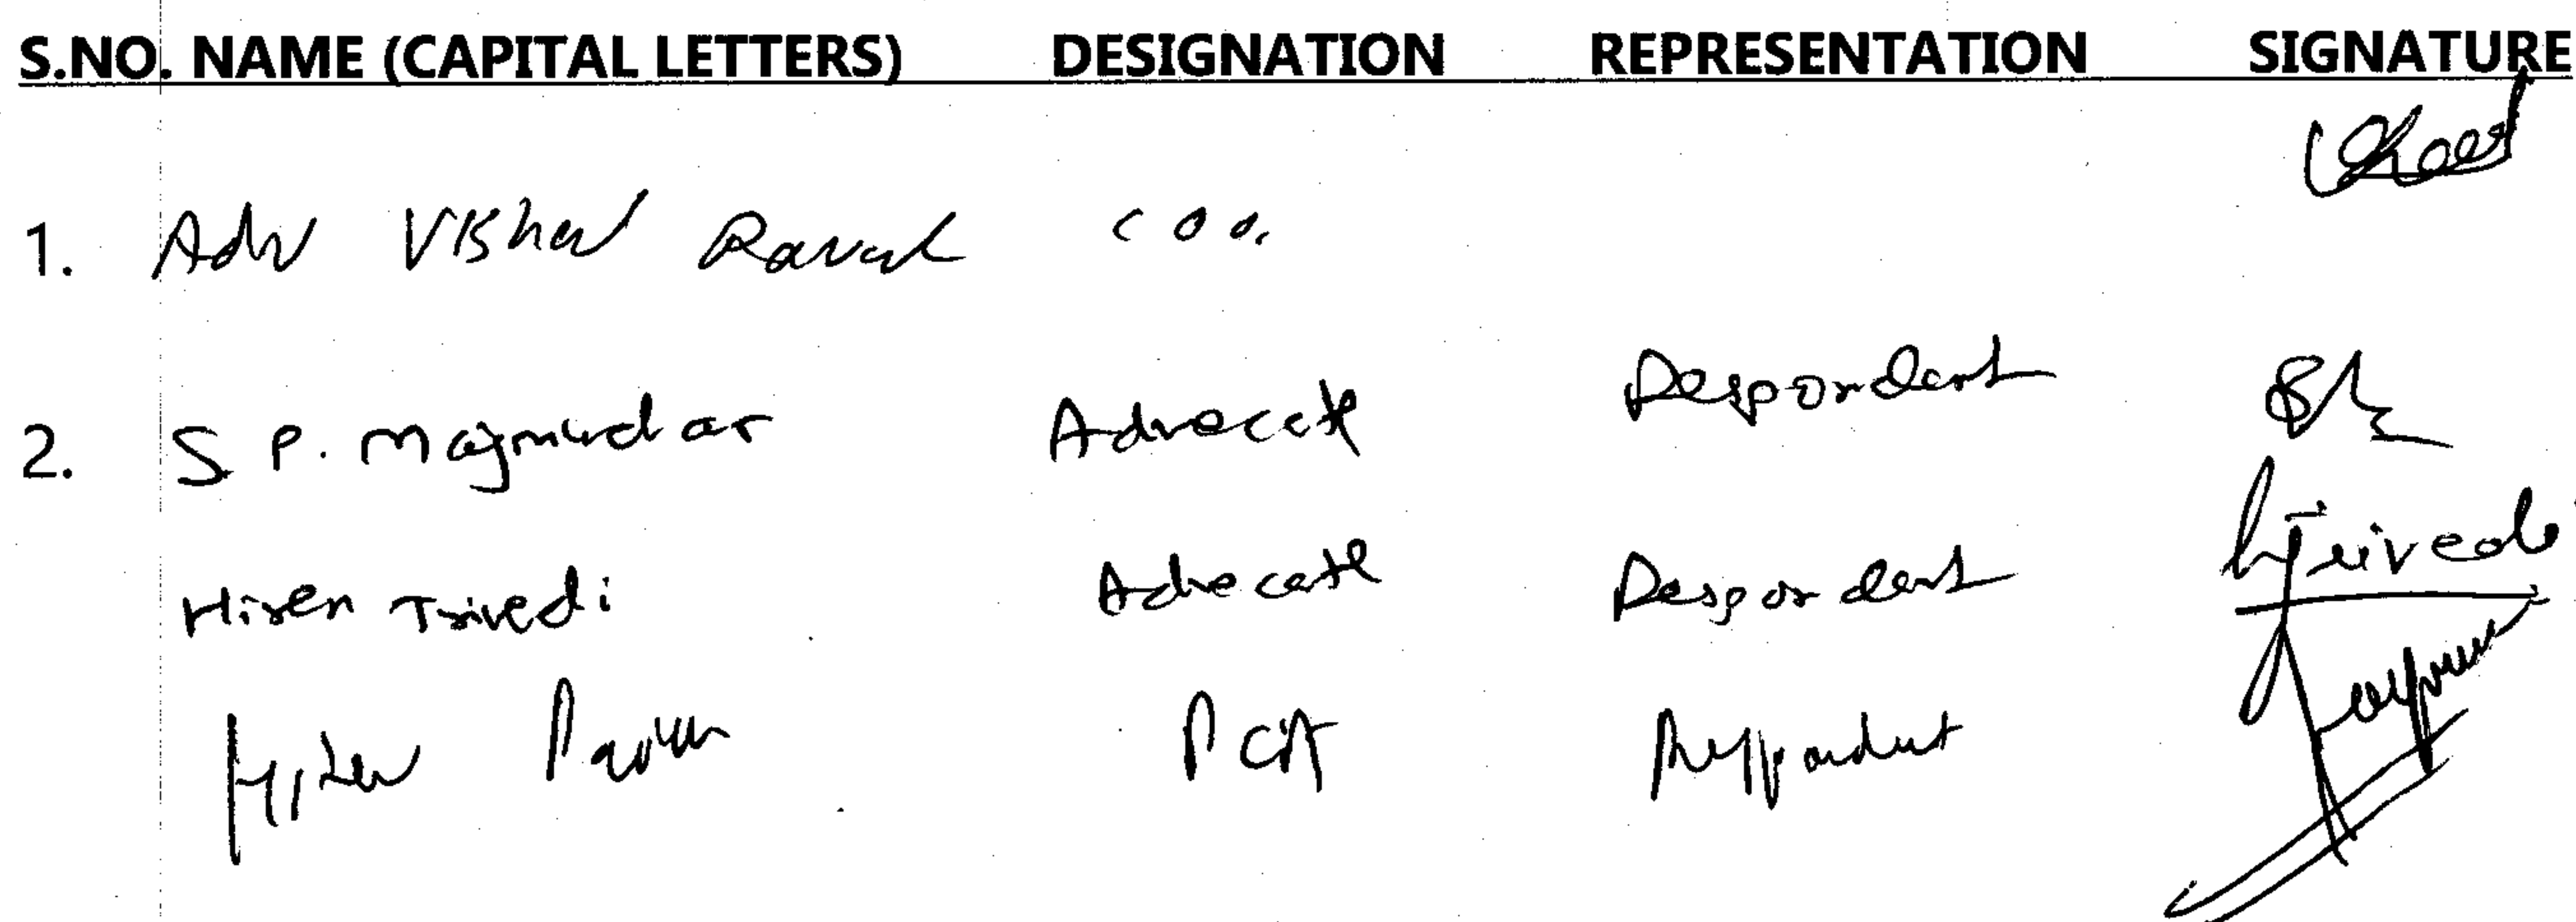 S.NO. NAME (CAPITAL LETTERS) DESIGNATION REPRESENTATION SIGNATURE
1. Adv Vishal Raval
2. S P. Majmudar Advocate Respondent
Hiren Trivedi Advocate Respondent Trivedi
PCA Respondent